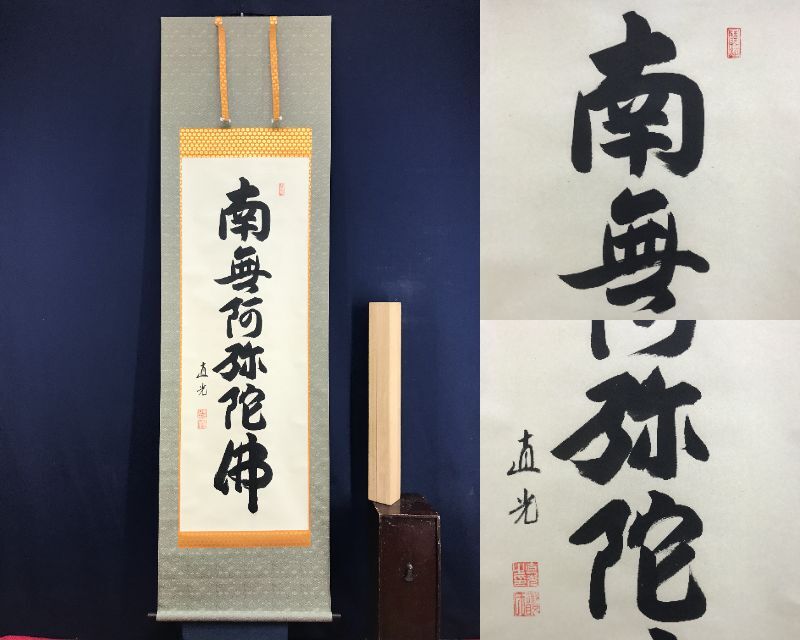 南無阿弥陀佛
直光
南無
弥陀
直光